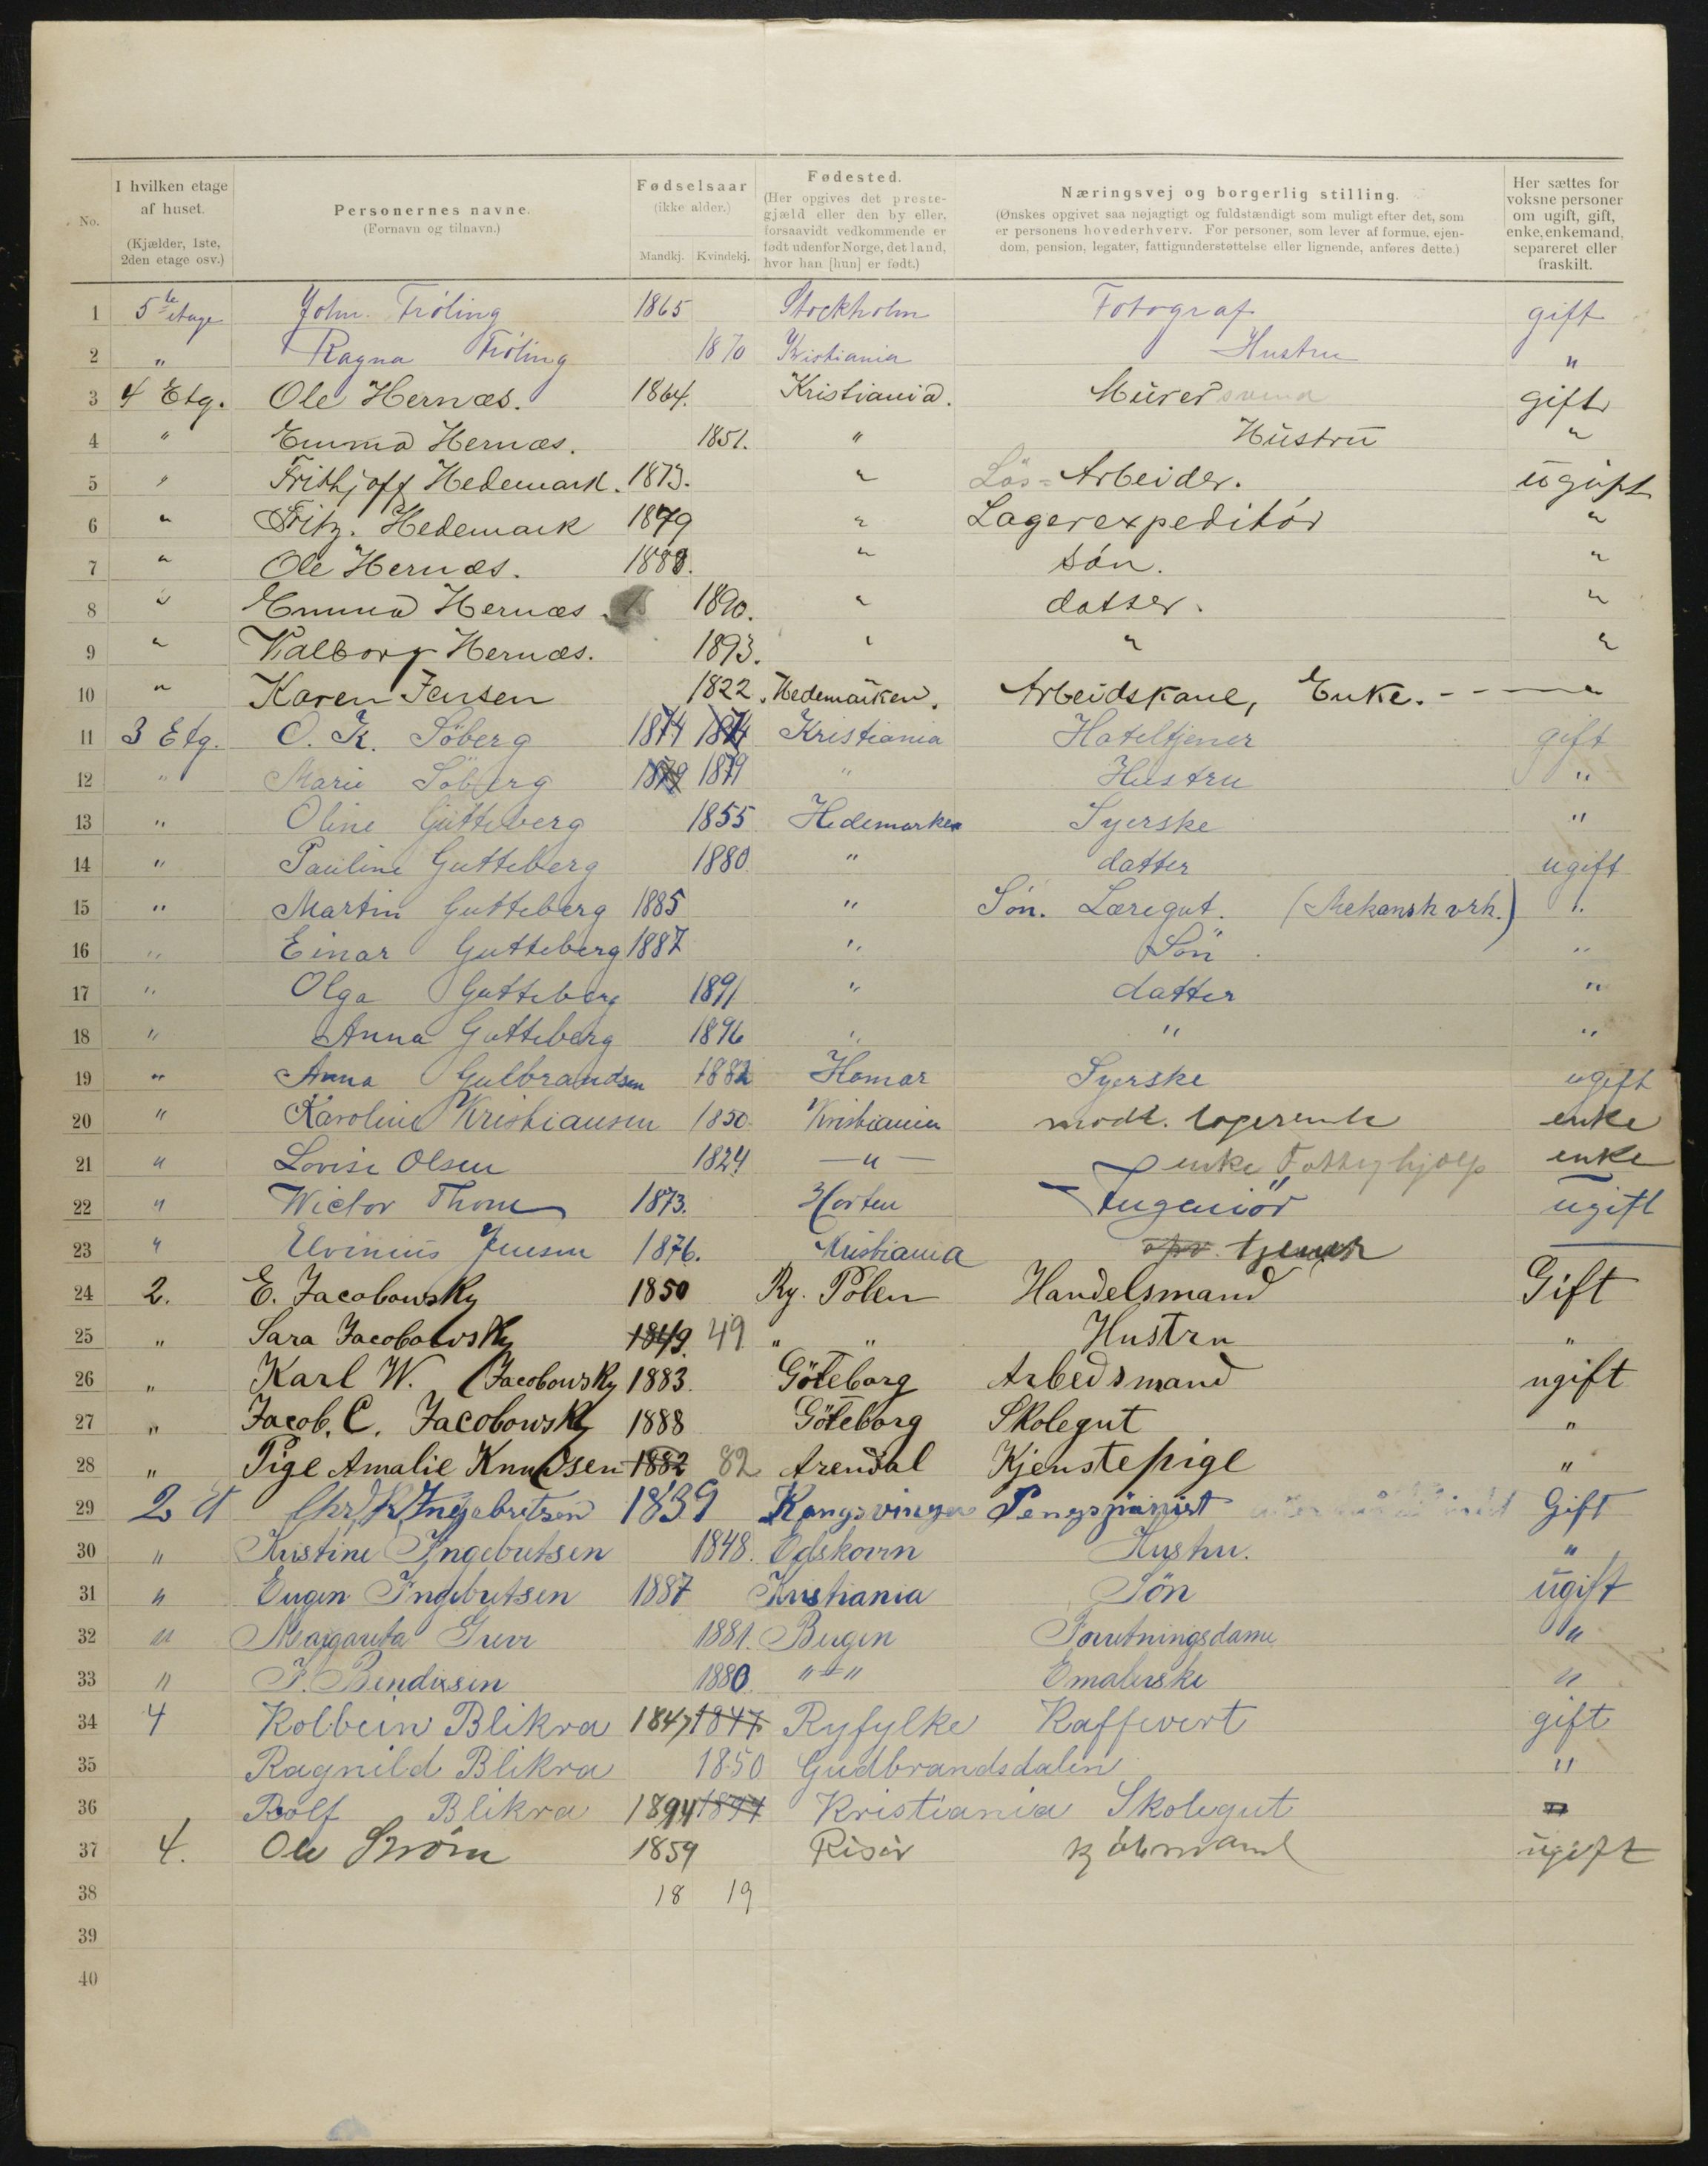 No.
I hvilken etage af huset.
(Kjælder, 1ste, 2den etage osv.)
Personernes navne.
(Fornavn og tilnavn.)
Fødselsaar
(ikke alder.)
Mandkj. Kvindekj.
Fødested.
(Her opgives det preste-
gjæld eller den by eller,
forsaavidt vedkommende er
født udenfor Norge, det land,
hvor han [hun] er født.)
Næringsvej og borgerlig stilling.
(Ønskes opgivet saa nøjagtigt og fuldstændigt som muligt efter det, som
er personens hovederhverv. For personer, som lever af formue, ejen-
dom, pension, legater, fattigunderstøttelse eller lignende, anføres dette.)
Her sættes for
voksne personer
om ugift, gift,
enke, enkemand,
separeret eller
fraskilt.
1 5te etage John Fröling 1865 Stockholm Fotograf gift
2 " Ragna Fröling 1870 Kristiania Hustru "
3 4 Etg. Ole Hernæs. 1864. Kristiania. Murersvend gift
4 " Emma Hernæs. 1851. " Hustru "
5 " Frithjoff Hedemark. 1873. " Løs= Arbeider. ugift
6 " Fritz. Hedemark 1879 " Lagerexpeditór "
7 " Ole Hernæs. 1888. " són. "
8 " Emma Hernæs. 1890. " datter. "
9 " Valborg Hernæs. 1893. " " "
10 " Karen Jensen 1822. Hedemarken. Arbeidskone, Enke. - - - "
11 3 Etg. O. K. Söberg 1874 1874 Kristiania Hoteltjener gift
12 " Marie Söberg 1879 1879 " Hustru "
13 " Oline Gutteberg 1855 Hedemarken Syerske "
14 " Pauline Gutteberg 1880 " datter ugift
15 " Martin Gutteberg 1885 " Søn. Læregut. (Mekansk vrk.) "
16 " Einar Gutteberg 1887 " Sön "
17 " Olga Gutteberg 1891 " datter "
18 " Anna Gutteberg 1896 " " "
19 " Anna Gulbrandsen 1882 Hamar Syerske ugift
20 " Karoline Kristiansen 1850. Kristiania modt. logerende enke
21 " Lovise Olsen 1824 — " — enke Fattighjælp enke
22 " Wictor Thom 1873. Horten Ingeniör ugift
23 " Elvinius Jensen 1876. Kristiania opv. tjener
24 2. E. Jacobowsky 1850 Ry. Polen Handelsmand Gift
25 " Sara Jacobowsky 1849. 49 " " Hustru "
26 " Karl W. Jacobowsky 1883. Göteborg Arbedsmand ugift
27 " Jacob. C. Jacobowsky 1888 Göteborg Skolegut "
28 " Pige Amalie Knudsen 1882 82 Arendal Kjenstepige "
29 2 Et Chr. K. Ingebretsen 1839 Kongsvinger Gift
30 " Kristine Ingebretsen 1848. Odskovn Hustru. "
31 " Eugen Ingebretsen 1887 Kristiania Søn ugift
32 " Margareta Greve 1881. Bergen Forretningsdame "
33 " J. Bendixsen 1880 " - " Emalerske "
34 4 Kolbein Blikra 1847 1847 Ryfylke Kaffevert gift
35 Ragnild Blikra 1850 Gudbrandsdalen "
36 Rolf Blikra 1894 1894 Kristiania Skolegut "
37 4. Ole Strøm 1859 Risør ugift
38 18 19
39
40